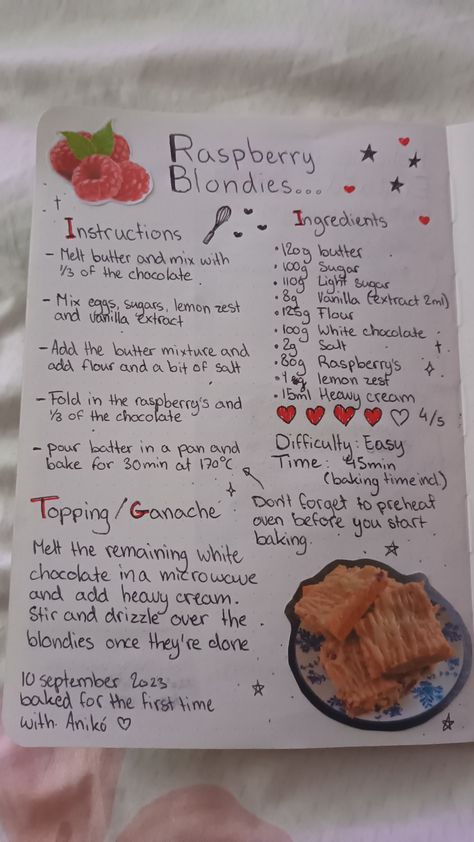 Raspberry
Blondies...
Instructions
- Melt butter and mix with
1/3 of the chocolate.
- Mix eggs, sugars, lemon zest
and vanilla extract
- Add the butter mixture and
add flour and a bit of salt
- Fold in the raspberry's and
1/3 of the chocolate
- pour batter in a pan and
bake for 30min at 170°C
Topping/Ganache
Melt the remaining white
chocolate in a microwave
and add heavy cream.
Stir and drizzle over the
blondies once they're done
10 september 2023
baked for the first time
with Anikó ♡
Ingredients
• 120g butter
• 100g Sugar
• 110g Light sugar
• 8g Vanilla (extract 2ml)
• 125g Flour
• 100g White chocolate
• 2g Salt
• 80g Raspberry's
• lemon zest
• 15ml Heavy cream
4/5
Difficulty: Easy
Time: 45min
(baking time incl.)
Don't forget to preheat
oven before you start
baking.